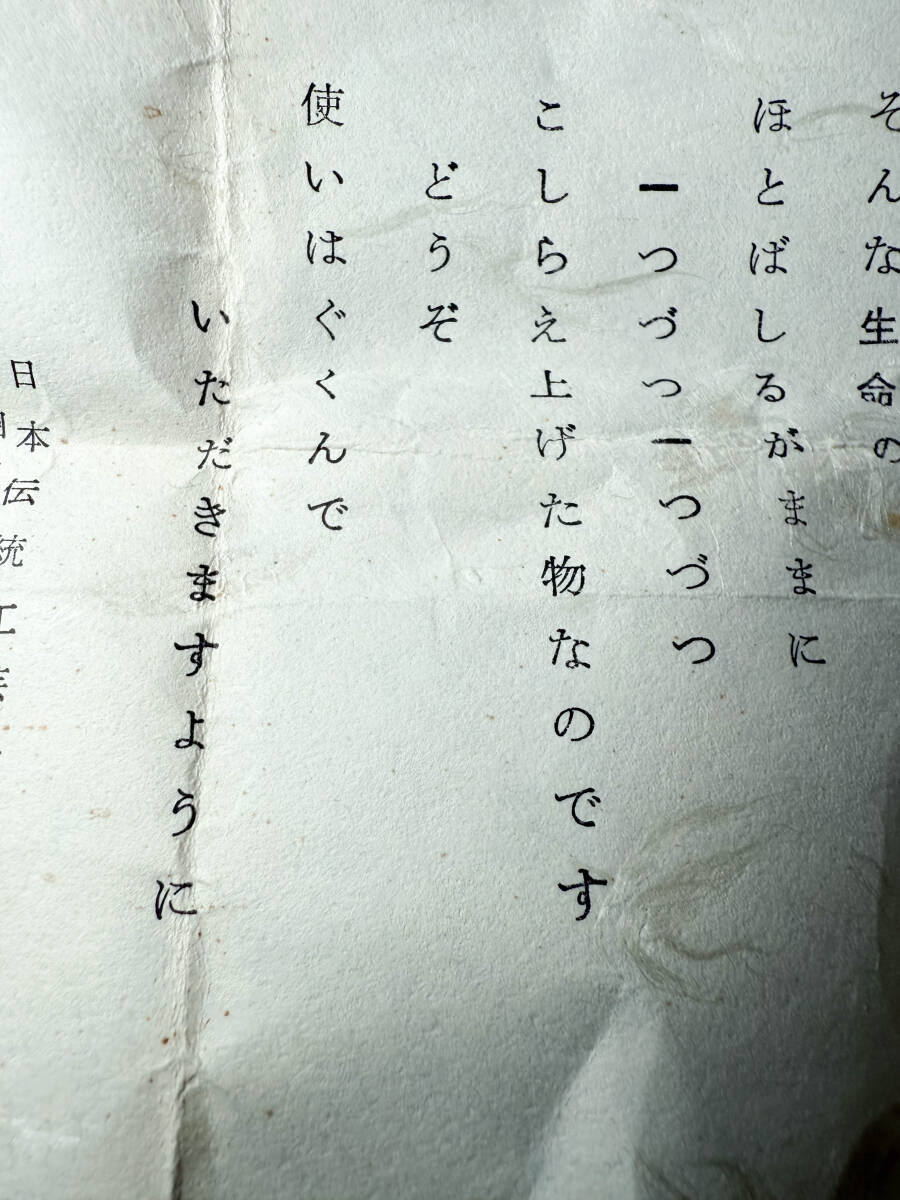 そんな生命の
ほとばしるがままに
一つづつ一つづつ
こしらえ上げた物なのです
どうぞ
使いはぐくんで
いただきますように
日本伝統工芸